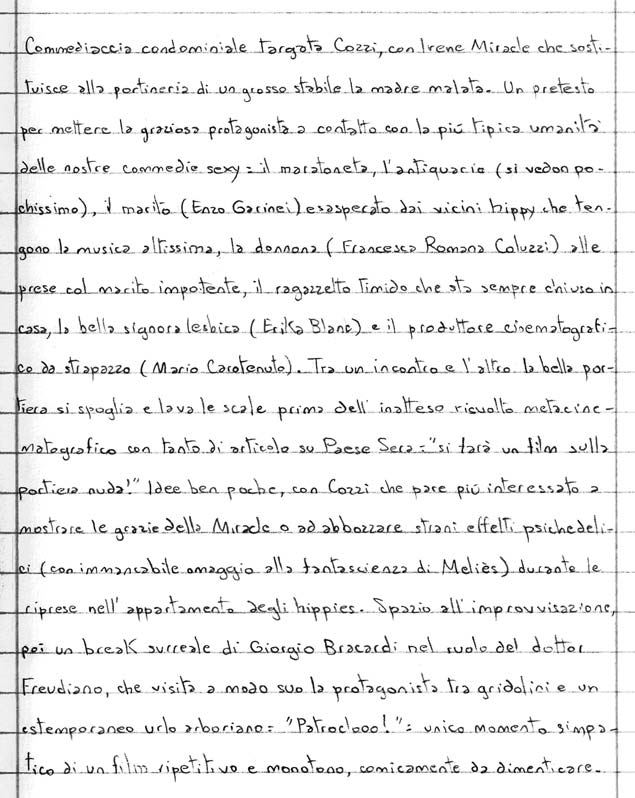 Commediaccia condominiale targata Cozzi, con Irene Miracle che sosti-
tuisce alla portineria di un grosso stabile la madre malata. Un pretesto
per mettere la graziosa protagonista a contatto con la più tipica umanità
delle nostre commedie sexy: il maratoneta, l'antiquario (si vedon po-
chissimo), il marito (Enzo Garinei) esasperato dai vicini hippy che ten-
gono la musica altissima, la donnona (Francesca Romana Coluzzi) alle
prese col marito impotente, il ragazzetto timido che sta sempre chiuso in
casa, la bella signora lesbica (Erika Blanc) e il produttore cinematografi-
co da strapazzo (Mario Carotenuto). Tra un incontro e l'altro la bella por-
tiera si spoglia e lava le scale prima dell'inatteso risvolto metacine-
matografico con tanto di articolo su Paese Sera: "si farà un film sulla
portiera nuda!" Idee ben poche, con Cozzi che pare più interessato a
mostrare le grazie della Miracle o ad abbozzare strani effetti psichedeli-
ci (con immancabile omaggio alla fantascienza di Meliès) durante le
riprese nell'appartamento degli hippies. Spazio all'improvvisazione,
poi un break surreale di Giorgio Bracardi nel ruolo del dottor
Freudiano, che visita a modo suo la protagonista tra gridolini e un
estemporaneo urlo arboriano: "Patroclooo!": unico momento simpa-
tico di un film ripetitivo e monotono, comicamente da dimenticare.